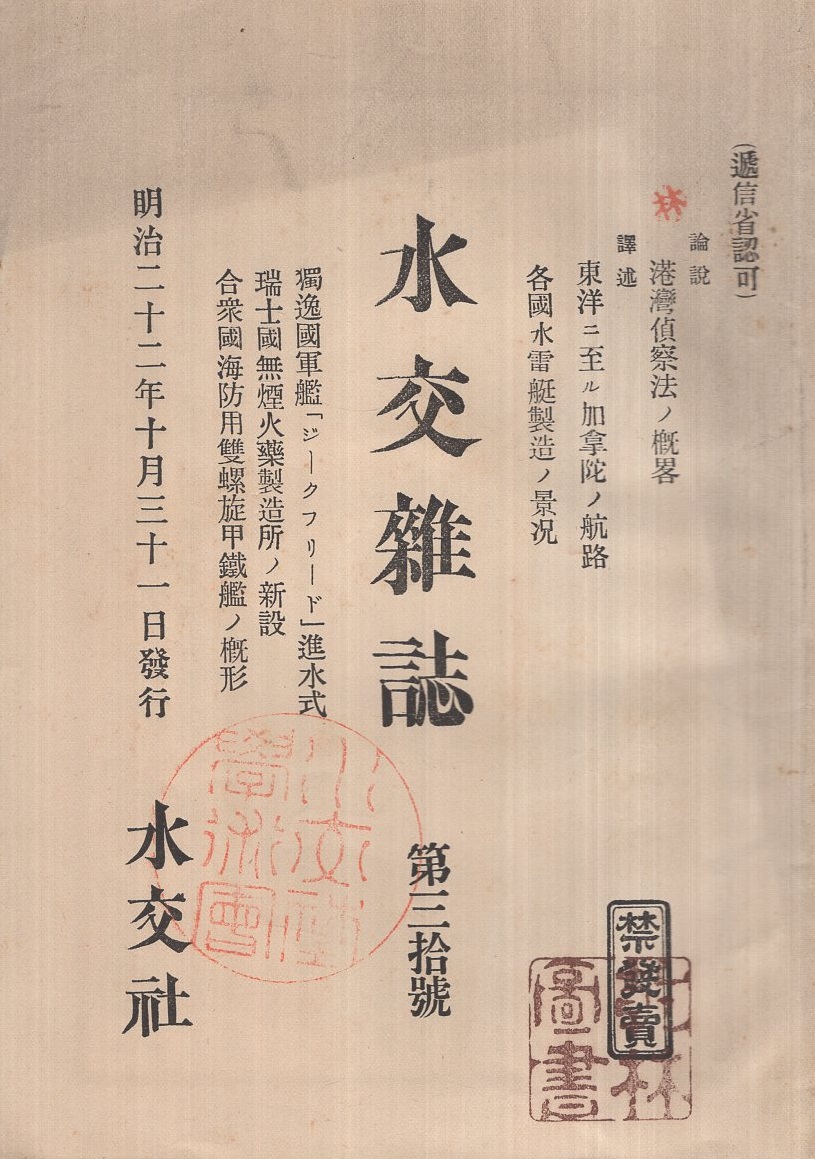 (遞信省認可)
論説
港灣偵察法ノ槪畧
譯述
東洋ニ至ル加拿陀ノ航路
各國水雷艇製造ノ景况
水交雜誌
第三拾號
獨逸國軍艦「ジークフリード」進水式
瑞士國無煙火藥製造所ノ新設
合衆國海防用雙螺旋甲鐵艦ノ槪形
明治二十二年十月三十一日發行
水交社
禁發賣
圖書